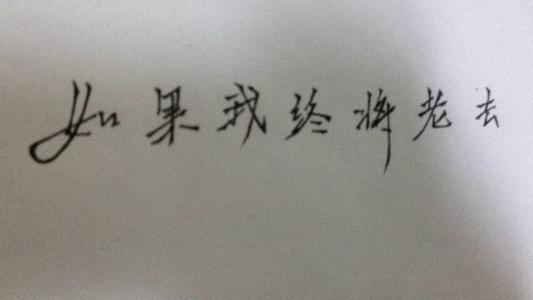 如果我终将老去